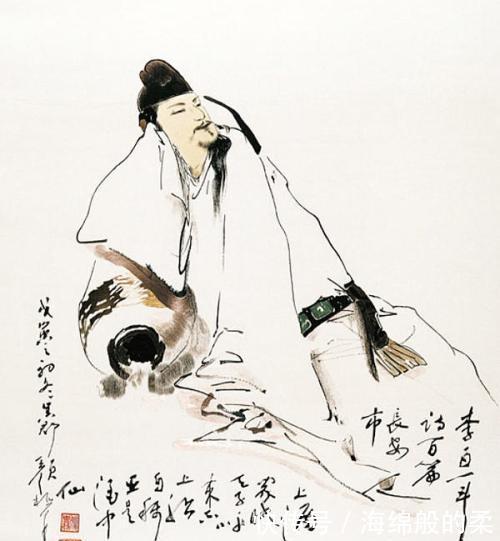 李白一斗
诗百篇
長安
市
上酒
家眠
天子呼
来不
上船
自称
臣是
酒中
仙
戊寅之初冬吴郡
快传号 / 海绵般的柔